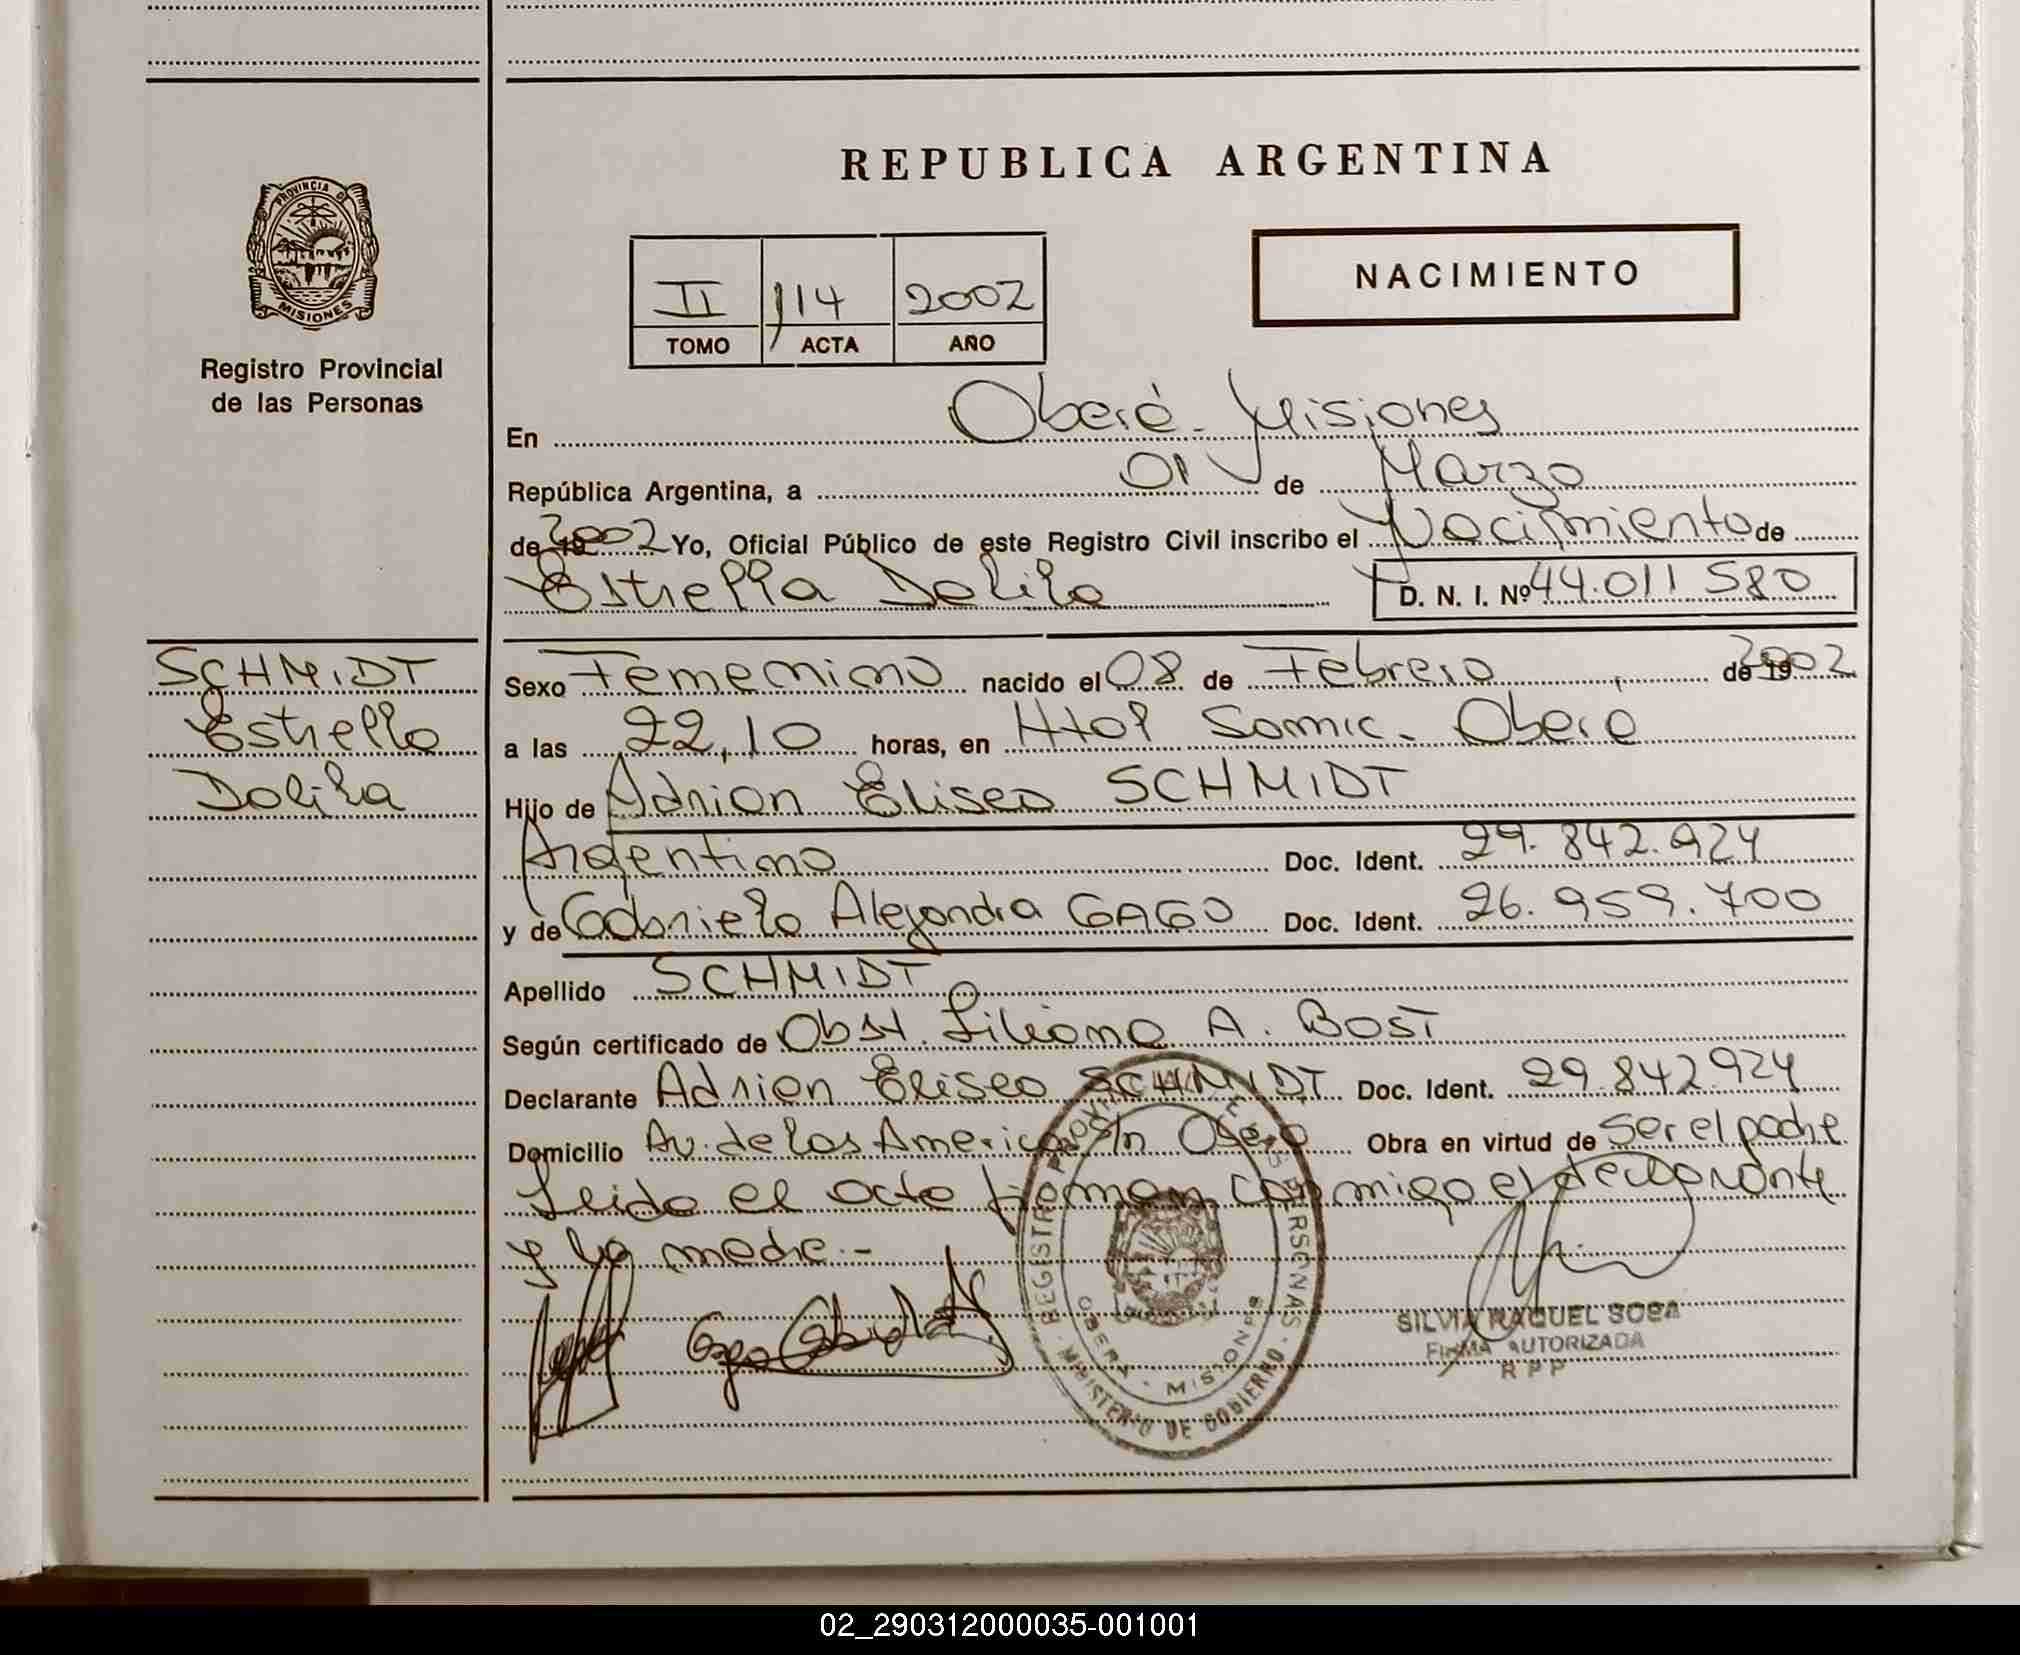 REPUBLICA ARGENTINA
PROVINCIA DE
MISIONES
Registro Provincial
de las Personas
II 114 2002
TOMO ACTA AÑO
NACIMIENTO
En Oberá - Misiones
República Argentina, a 01 de Marzo
de 2002 Yo, Oficial Público de este Registro Civil inscribo el Nacimiento de
Estrella Dalila D. N. I. Nº 44.011580
SCHMIDT
Estrella
Dalila
Sexo Femenino nacido el 08 de Febrero de 2002
a las 22,10 horas, en Htol Samic - Oberá
Hijo de Adrian Eliseo SCHMIDT
Argentino Doc. Ident. 29.842.924
y de Gabriela Alejandra GAGO Doc. Ident. 26.959.700
Apellido SCHMIDT
Según certificado de Obst. Liliana A. BOST
Declarante Adrian Eliseo SCHMIDT Doc. Ident. 29.842924
Domicilio Av. de las Americas s/n Oberá Obra en virtud de ser el padre
Leida el acta firman conmigo el declarante
y la madre.-
REGISTRO PROVINCIAL DE LAS PERSONAS
OBERA - MISIONES
MINISTERIO DE GOBIERNO
SILVIA RAQUEL SOSA
FIRMA AUTORIZADA
R P P
02_290312000035-001001